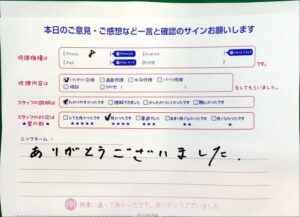 本日のご意見・ご感想など一言と確認のサインお願いします
修理機種は
iPhone 8 Android
iPad その他 です。
修理内容は
✓バッテリー交換 画面修理 水没修理 パーツ修理
相談 その他( ) をしてもらいました。
スタッフの説明は ✓わかりやすかったです 理解できました 少しわかりにくかったです 難しかったです
スタッフの対応は とても良かったです ✓良かったです 普通でした
★の数 ★★★★★ ★★★★ ★★★ ★★ ★
ニックネーム:
ありがとうございました。